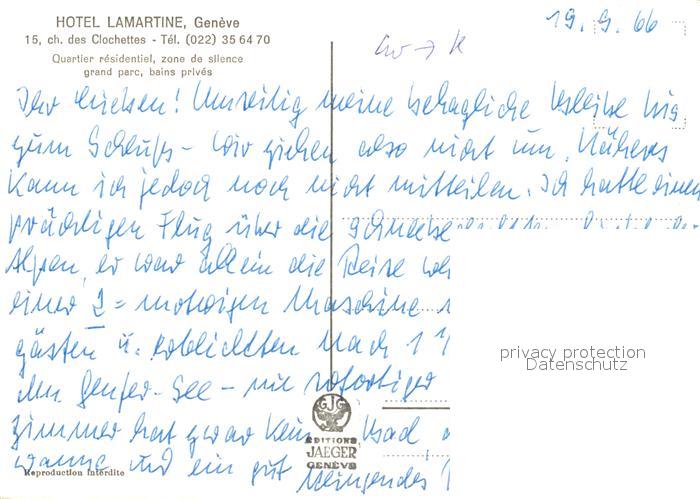 HOTEL LAMARTINE, Genève
15, ch. des Clochettes - Tél. (022) 35 64 70
Quartier résidentiel, zone de silence
grand parc, bains privés
19. 9. 66
Ihr Lieben! Umseitig meine behagliche Bleibe bis
zum Schluß - wir ziehen also nicht um. Näheres
kann ich jedoch noch nicht mitteilen. Ich hatte einen
prächtigen Flug über die
Alpen, er war allein die Reise
einer 2 = motorigen Maschine
gästen u. erblickten nach 1
den Genfer-See -
zimmer hat zwar kein Bad
wanne und ein gut
privacy protection
Datenschutz
GJG
EDITIONS
JAEGER
GENÈVE
Reproduction interdite